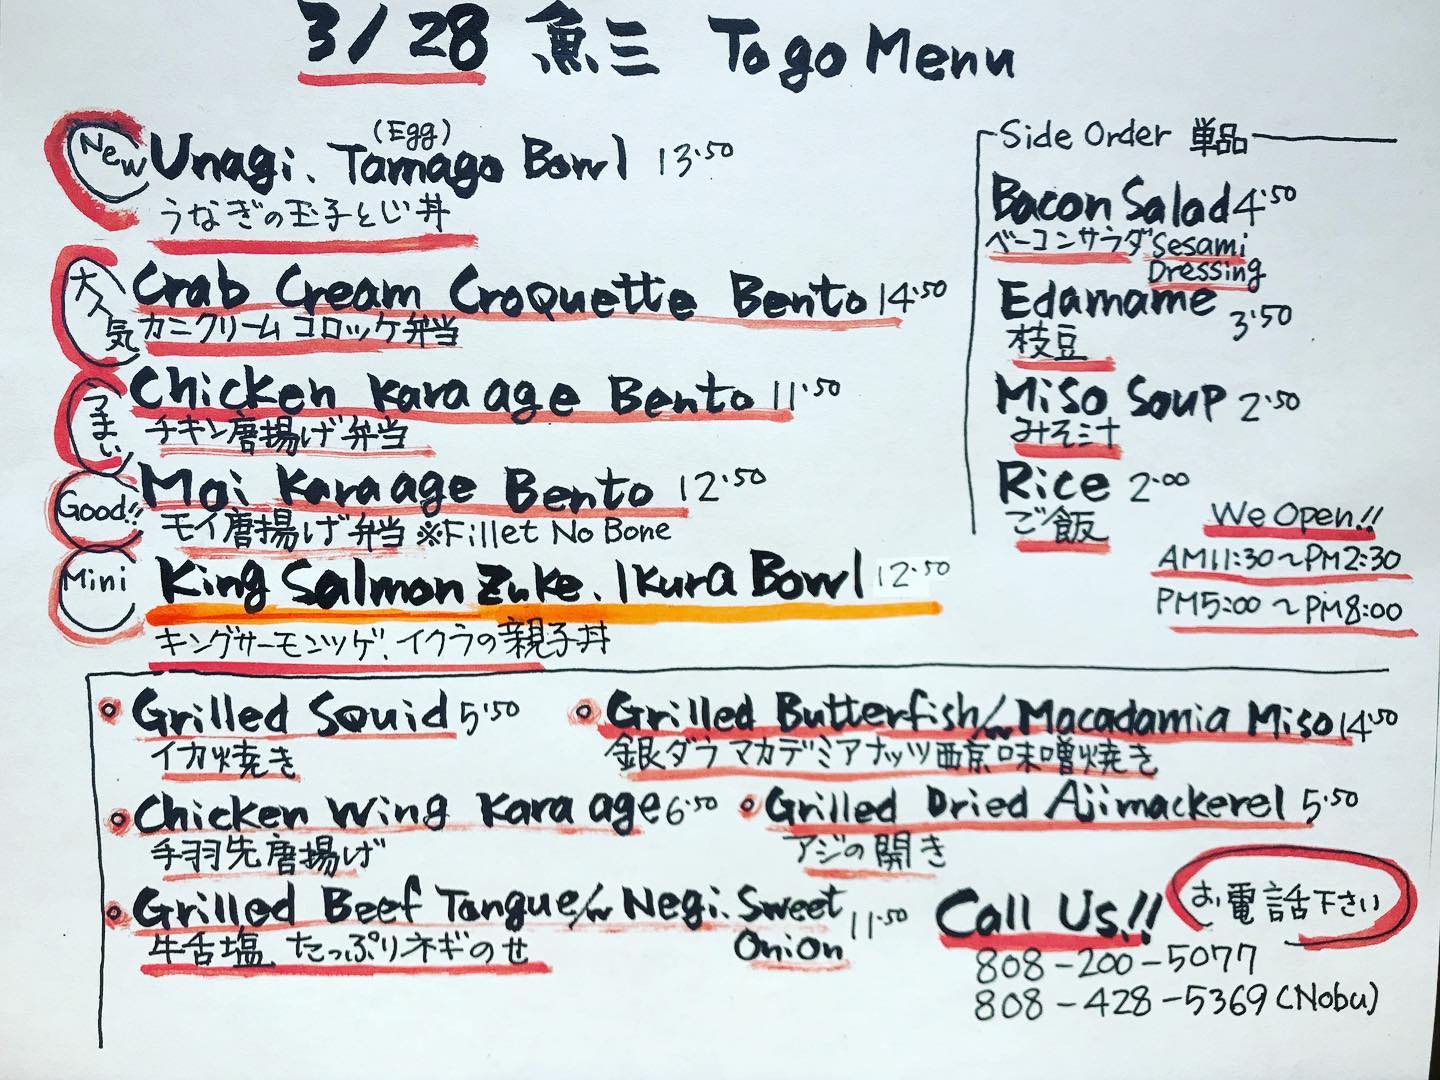 3/28 魚三 To go Menu
New Unagi. Tamago (Egg) Bowl 13.50
うなぎの玉子とじ丼
大人気 Crab Cream Croquette Bento 14.50
カニクリームコロッケ弁当
うまい Chicken Kara age Bento 11.50
チキン唐揚げ弁当
Good!! Moi Kara age Bento 12.50
モイ唐揚げ弁当 ※Fillet No Bone
Mini King Salmon Zuke. Ikura Bowl 12.50
キングサーモンヅケ.イクラの親子丼
Side Order 単品
Bacon Salad 4.50
ベーコンサラダ Sesami
Dressing
Edamame 3.50
枝豆
Miso Soup 2.50
みそ汁
Rice 2.00
ご飯
We Open!!
AM11:30〜PM2:30
PM5:00〜PM8:00
Grilled Squid 5.50
イカ焼き
Grilled Butterfish/w Macadamia Miso 14.50
銀ダラマカデミアナッツ西京味噌焼き
Chicken Wing Kara age 6.50
手羽先唐揚げ
Grilled Dried Aji mackerel 5.50
アジの開き
Grilled Beef Tangue/w Negi. Sweet
Onion 11.50
牛舌塩.たっぷりネギのせ
Call Us!! お電話下さい
808-200-5077
808-428-5369 (Nobu)